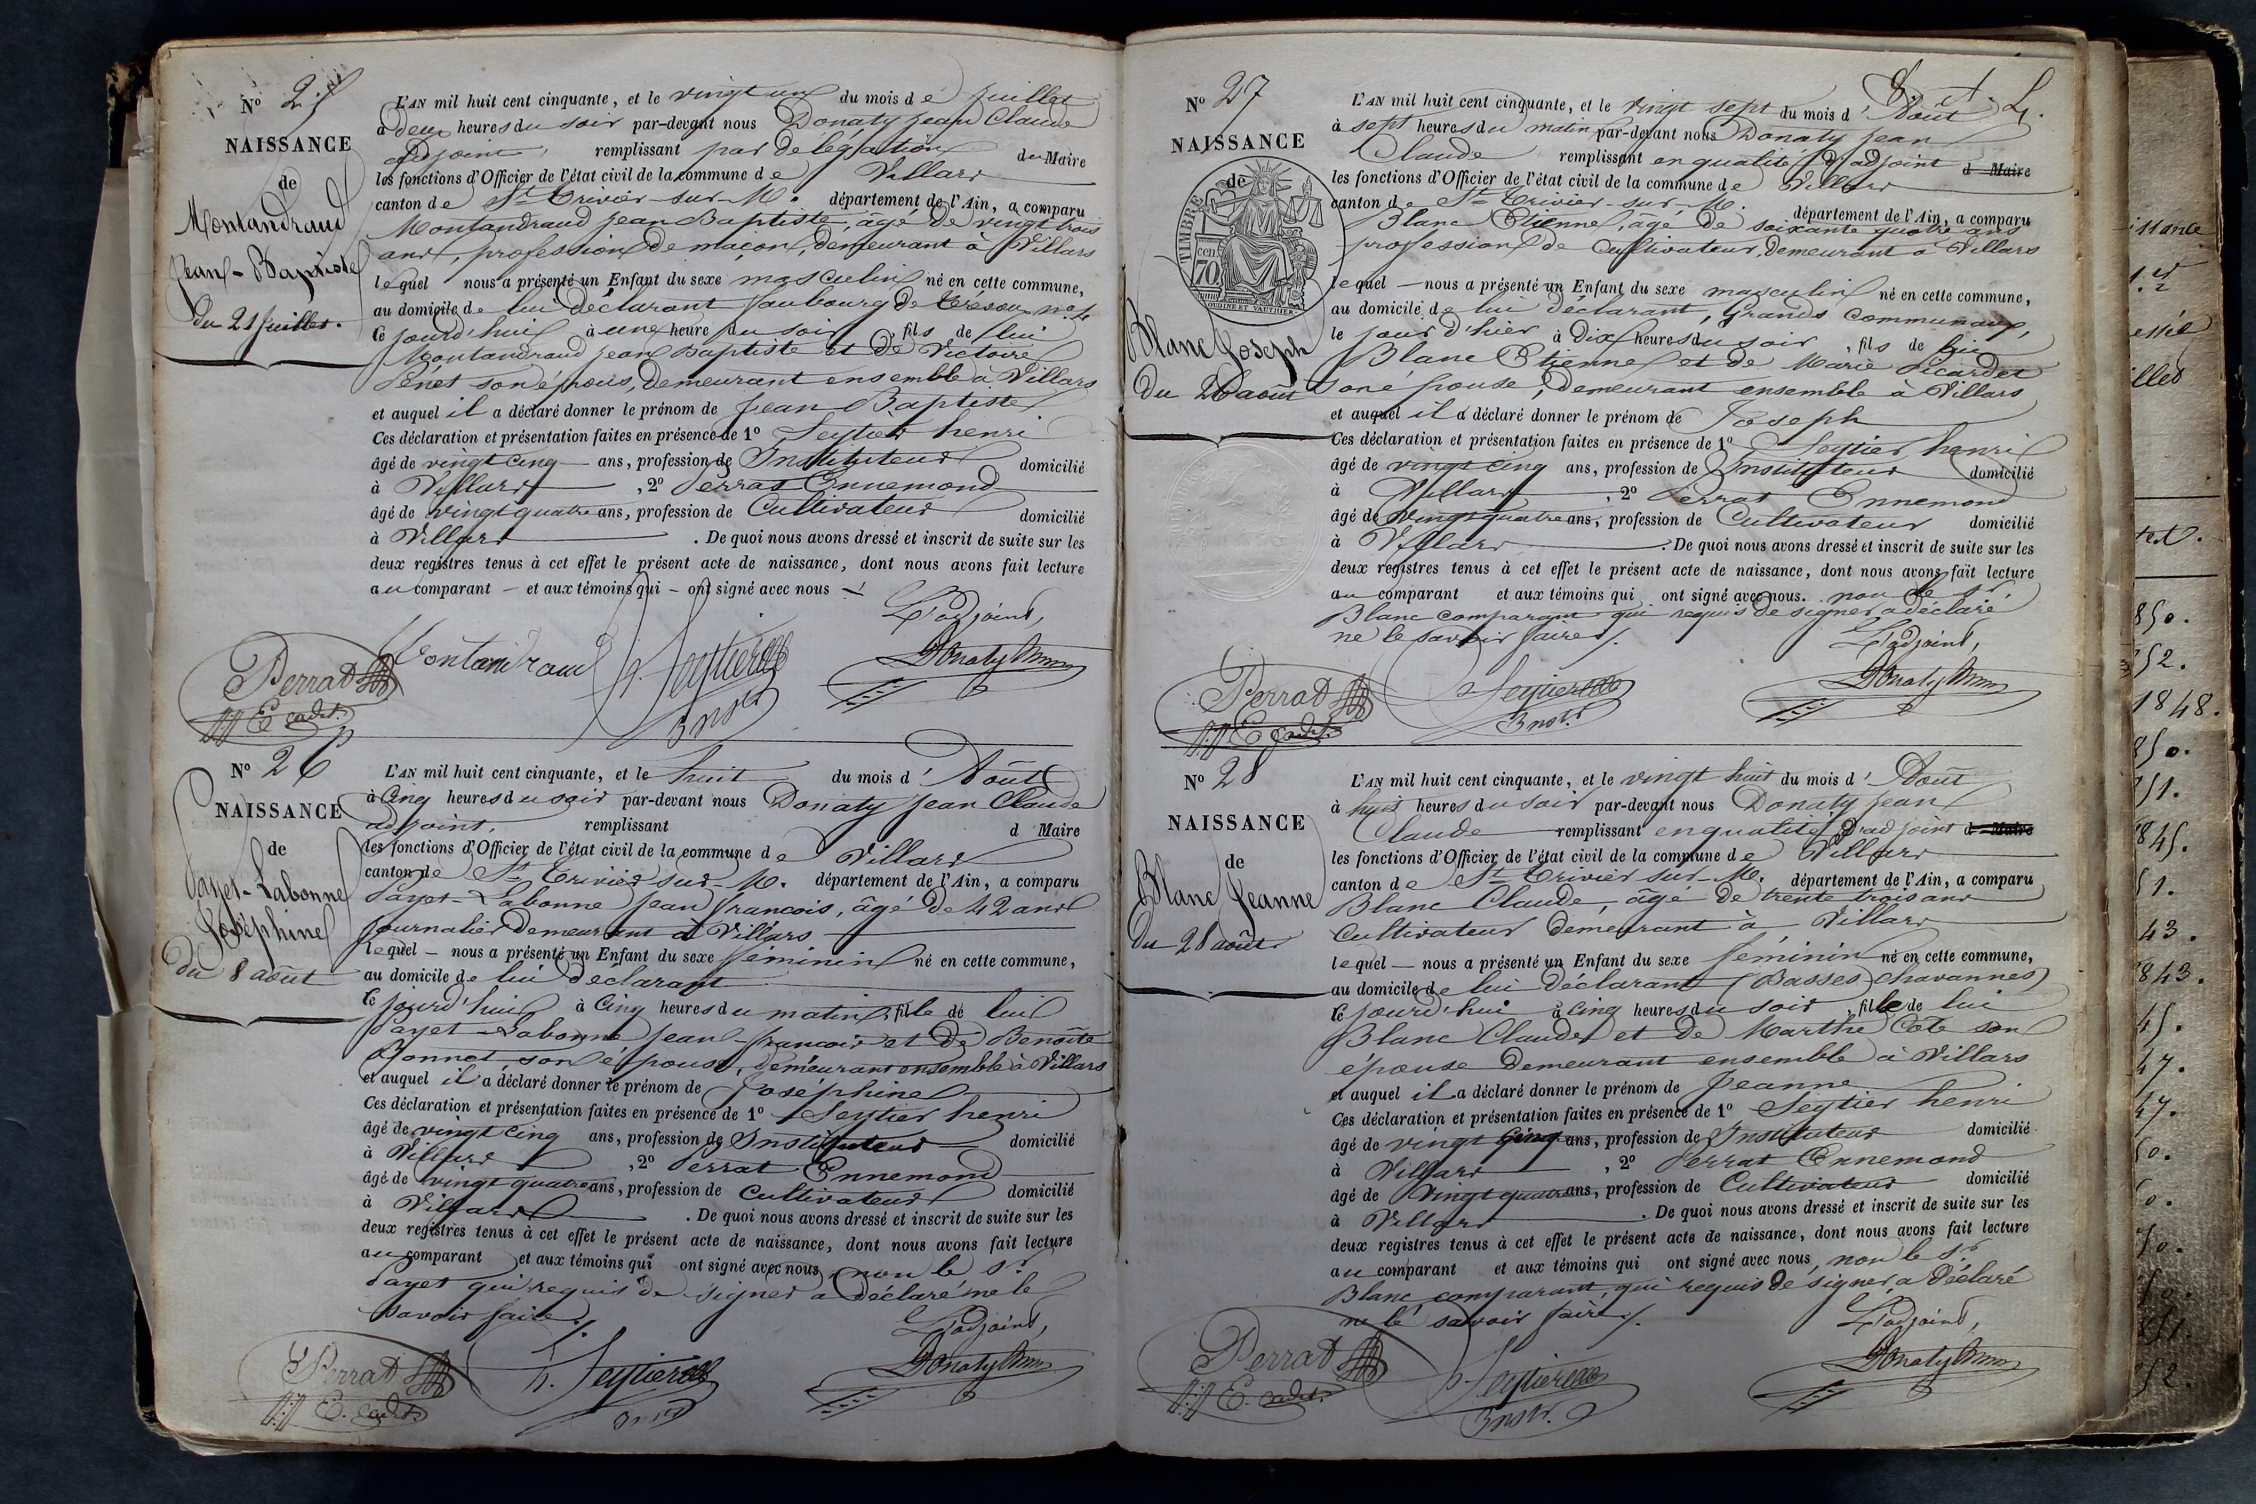 N.º 25
NAISSANCE
de
Montandraud
Jean-Baptiste
du 21 Juillet.
L'AN mil huit cent cinquante, et le vingt un du mois de juillet
à deux heures du soir par-devant nous Donaty jean Claude
adjoint, remplissant par délégation du Maire
les fonctions d'Officier de l'état civil de la commune de Villars
canton de St Trivier-sur-M. département de l'Ain, a comparu
Montandraud jean Baptiste, âgé de vingt trois
ans, profession de maçon, demeurant à Villars
lequel nous a présenté un Enfant du sexe masculin né en cette commune,
au domicile de lui déclarant faubourg de
ce jourd'hui à une heure du soir, fils de lui
Montandraud jean Baptiste et de Victoire
Penet son épouse, demeurant ensemble à Villars
et auquel il a déclaré donner le prénom de jean Baptiste
Ces déclaration et présentation faites en présence de 1º Seytier henri
âgé de vingt cinq ans, profession de Instituteur domicilié
à Villars, 2º Perrat Ennemond
âgé de vingt quatre ans, profession de Cultivateur domicilié
à Villars. De quoi nous avons dressé et inscrit de suite sur les
deux registres tenus à cet effet le présent acte de naissance, dont nous avons fait lecture
au comparant et aux témoins qui ont signé avec nous
L'adjoint,
Perrat E. cadet. Montandraud h. Seytier Instr Donaty
N.º 26
NAISSANCE
de
Payet-Labonne
Joséphine
du 8 août
L'AN mil huit cent cinquante, et le huit du mois d'Août
à cinq heures du soir par-devant nous Donaty jean Claude
adjoint, remplissant d Maire
les fonctions d'Officier de l'état civil de la commune de Villars
canton de St Trivier sur-M. département de l'Ain, a comparu
Payet-Labonne jean francois, âgé de 42 ans
journalier demeurant à Villars
lequel nous a présenté un Enfant du sexe féminin né en cette commune,
au domicile de lui déclarant
ce jourd'hui à cinq heures du matin, fille de lui
Payet-Labonne jean-francois et de Benoîte
Bonnet son épouse, demeurant ensemble à Villars
et auquel il a déclaré donner le prénom de Joséphine
Ces déclaration et présentation faites en présence de 1º Seytier henri
âgé de vingt cinq ans, profession de Instituteur domicilié
à Villars, 2º Perrat Ennemond
âgé de vingt quatre ans, profession de Cultivateur domicilié
à Villars. De quoi nous avons dressé et inscrit de suite sur les
deux registres tenus à cet effet le présent acte de naissance, dont nous avons fait lecture
au comparant et aux témoins qui ont signé avec nous, non le Sr
Payet qui requis de signer a déclaré ne le
savoir faire.
L'adjoint,
Perrat E. cadet h. Seytier Donaty
N.º 27
NAISSANCE
de
TIMBRE
70 cent
OUDINE ET VAUTHIER
Blanc Joseph
du 26 août
L'AN mil huit cent cinquante, et le vingt sept du mois d'Août
à sept heures du matin par-devant nous Donaty jean
Claude remplissant en qualité d'adjoint d Maire
les fonctions d'Officier de l'état civil de la commune de Villars
canton de St Trivier-sur-M. département de l'Ain, a comparu
Blanc Etienne, âgé de soixante quatre ans
profession de Cultivateur, demeurant à Villars
lequel nous a présenté un Enfant du sexe masculin né en cette commune,
au domicile de lui déclarant, Grands Communaux,
le jour d'hier à dix heures du soir, fils de lui
Blanc Etienne et de Marie Picardet
son épouse, demeurant ensemble à Villars
et auquel il a déclaré donner le prénom de Joseph
Ces déclaration et présentation faites en présence de 1º Seytier henri
âgé de vingt cinq ans, profession de Instituteur domicilié
à Villars, 2º Perrat Ennemond
âgé de vingt quatre ans, profession de Cultivateur domicilié
à Villars. De quoi nous avons dressé et inscrit de suite sur les
deux registres tenus à cet effet le présent acte de naissance, dont nous avons fait lecture
au comparant et aux témoins qui ont signé avec nous. non le Sr.
Blanc comparant qui requis de signer a déclaré
ne le savoir faire.
L'adjoint,
Perrat E. cadet. Seytier Instr. Donaty
N.º 28
NAISSANCE
de
Blanc Jeanne
du 28 août
L'AN mil huit cent cinquante, et le vingt huit du mois d'Août
à huit heures du soir par-devant nous Donaty jean
Claude remplissant en qualité d'adjoint d Maire
les fonctions d'Officier de l'état civil de la commune de Villars
canton de St Trivier sur-M. département de l'Ain, a comparu
Blanc Claude, âgé de trente trois ans
Cultivateur demeurant à Villars
lequel nous a présenté un Enfant du sexe féminin né en cette commune,
au domicile de lui déclarant (Basses Chavannes)
ce jourd'hui à cinq heures du soir, fille de lui
Blanc Claude et de Marthe Cote son
épouse demeurant ensemble à Villars
et auquel il a déclaré donner le prénom de Jeanne
Ces déclaration et présentation faites en présence de 1º Seytier henri
âgé de vingt cinq ans, profession de Instituteur domicilié
à Villars, 2º Perrat Ennemond
âgé de vingt quatre ans, profession de Cultivateur domicilié
à Villars. De quoi nous avons dressé et inscrit de suite sur les
deux registres tenus à cet effet le présent acte de naissance, dont nous avons fait lecture
au comparant et aux témoins qui ont signé avec nous, non le Sr
Blanc comparant, qui requis de signer a déclaré
ne le savoir faire.
L'adjoint,
Perrat E. cadet. Seytier Instr. Donaty
1848.